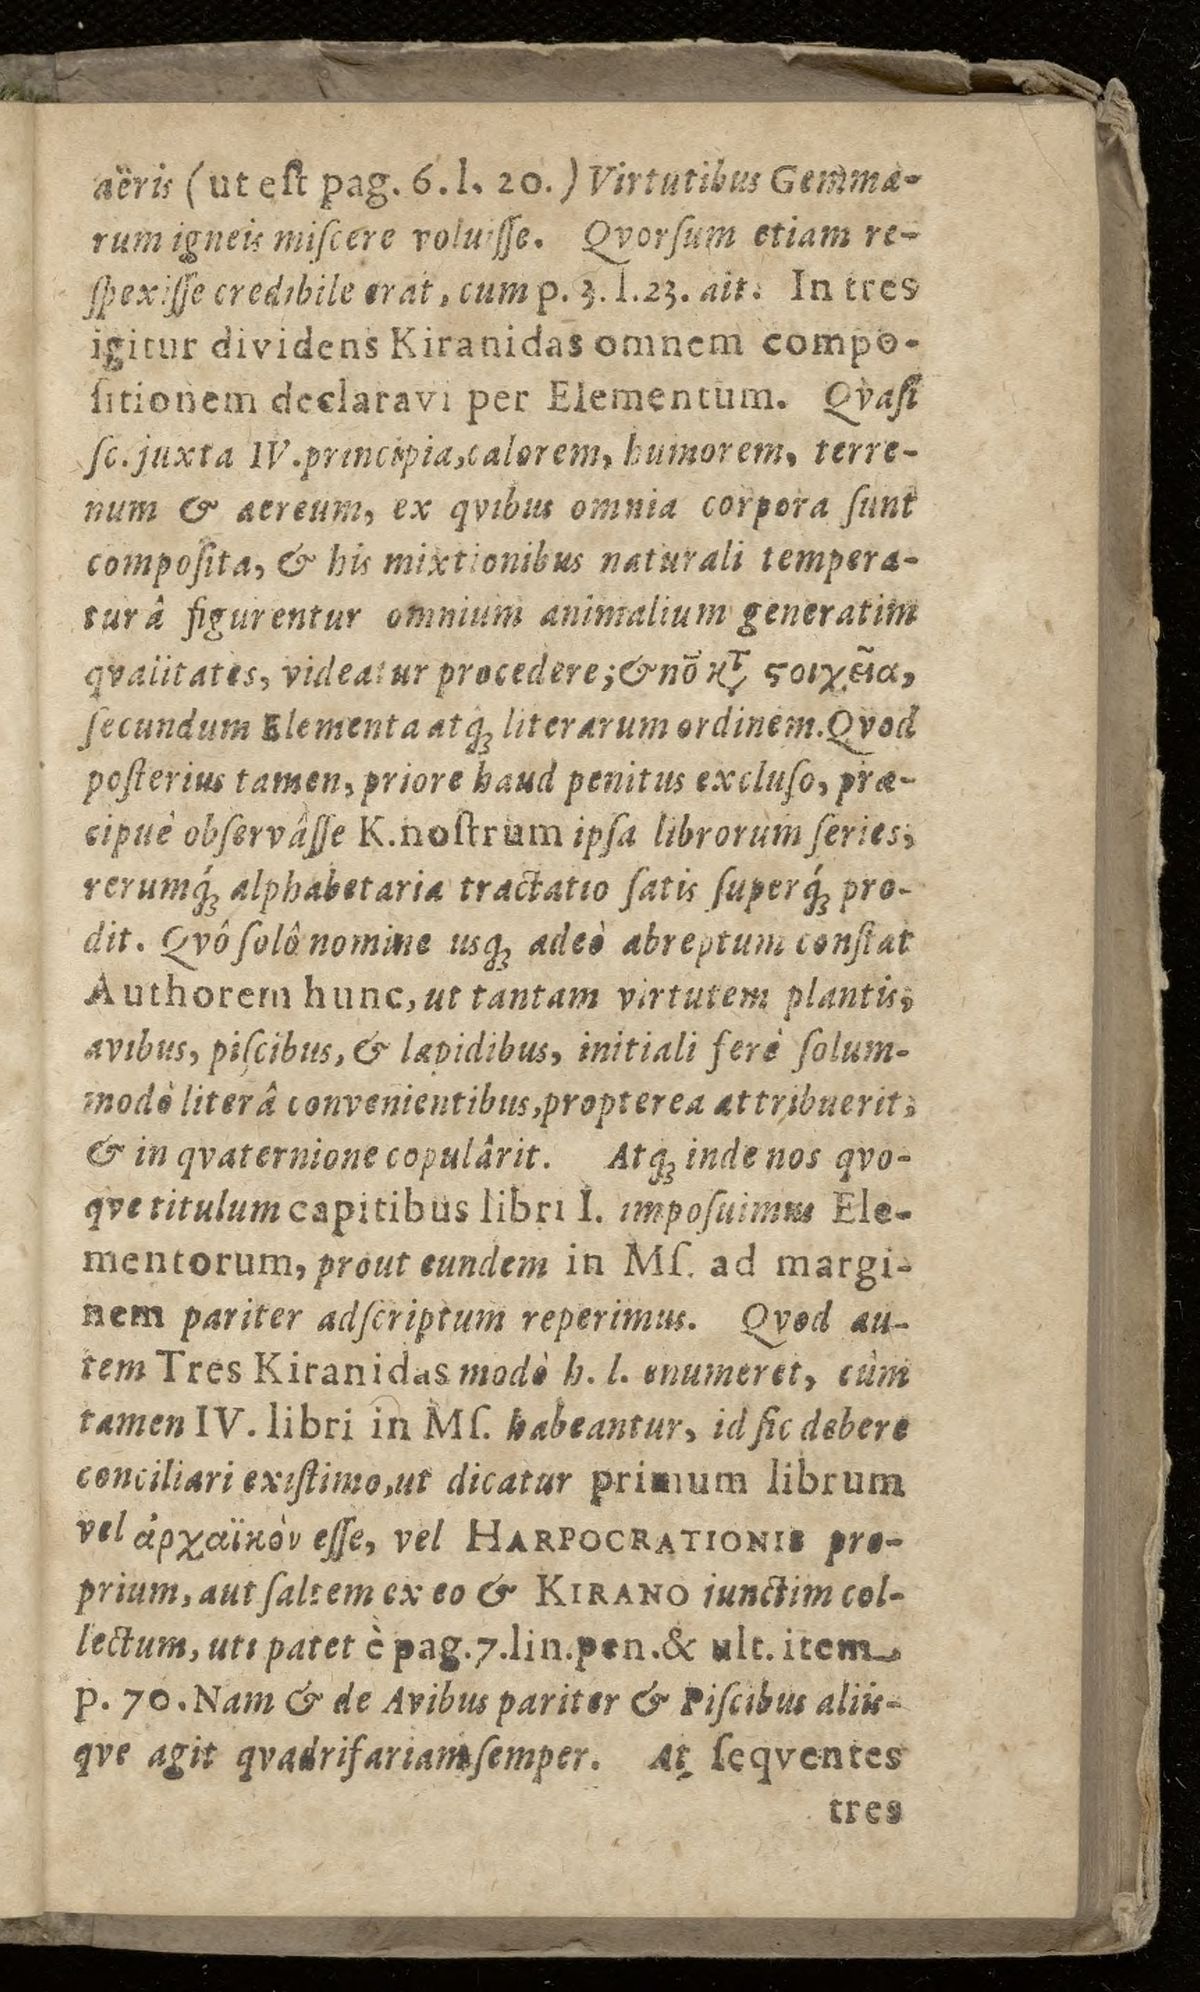 aëris (ut eſt pag. 6. l. 20.) Virtutibus Gemma-
rum igneis miſcere voluiſſe. Qvorſum etiam re-
ſpexiſſe credibile erat, cum p. 3. l. 23. ait: In tres
igitur dividens Kiranidas omnem compo-
ſitionem declaravi per Elementum. Qvaſi
ſc. juxta IV. principia, calorem, humorem, terre-
num & aereum, ex qvibus omnia corpora ſunt
compoſita, & his mixtionibus naturali tempera-
turâ figurentur omnium animalium generatim
qvalitates, videatur procedere; & nõ ϗτ̃ ϛοιχεῖα,
ſecundum Elementa atq́; literarum ordinem. Qvod
poſterius tamen, priore haud penitus excluſo, præ-
cipuè obſervâſſe K. noſtrum ipſa librorum ſeries,
rerumq́; alphabetaria tractatio ſatis ſuperq́; pro-
dit. Qvô ſolô nomine usq; adeò abreptum conſtat
Authorem hunc, ut tantam virtutem plantis,
avibus, piſcibus, & lapidibus, initiali ferè ſolum-
modò literâ convenientibus, propterea attribuerit,
& in qvaternione copulârit. Atq; inde nos qvo-
qve titulum capitibus libri I. impoſuimus Ele-
mentorum, prout eundem in Mſ. ad margi-
nem pariter adſcriptum reperimus. Qvod au-
tem Tres Kiranidas modò h. l. enumeret, cùm
tamen IV. libri in Mſ. habeantur, id ſic debere
conciliari exiſtimo, ut dicatur primum librum
vel ἀρχαϊκὸν eſſe, vel HARPOCRATIONIS pro-
prium, aut ſaltem ex eo & KIRANO iunctim col-
lectum, uti patet è pag. 7. lin. pen. & ult. item
p. 70. Nam & de Avibus pariter & Piſcibus aliis-
qve agit qvadrifariam ſemper. At ſeqventes
tres